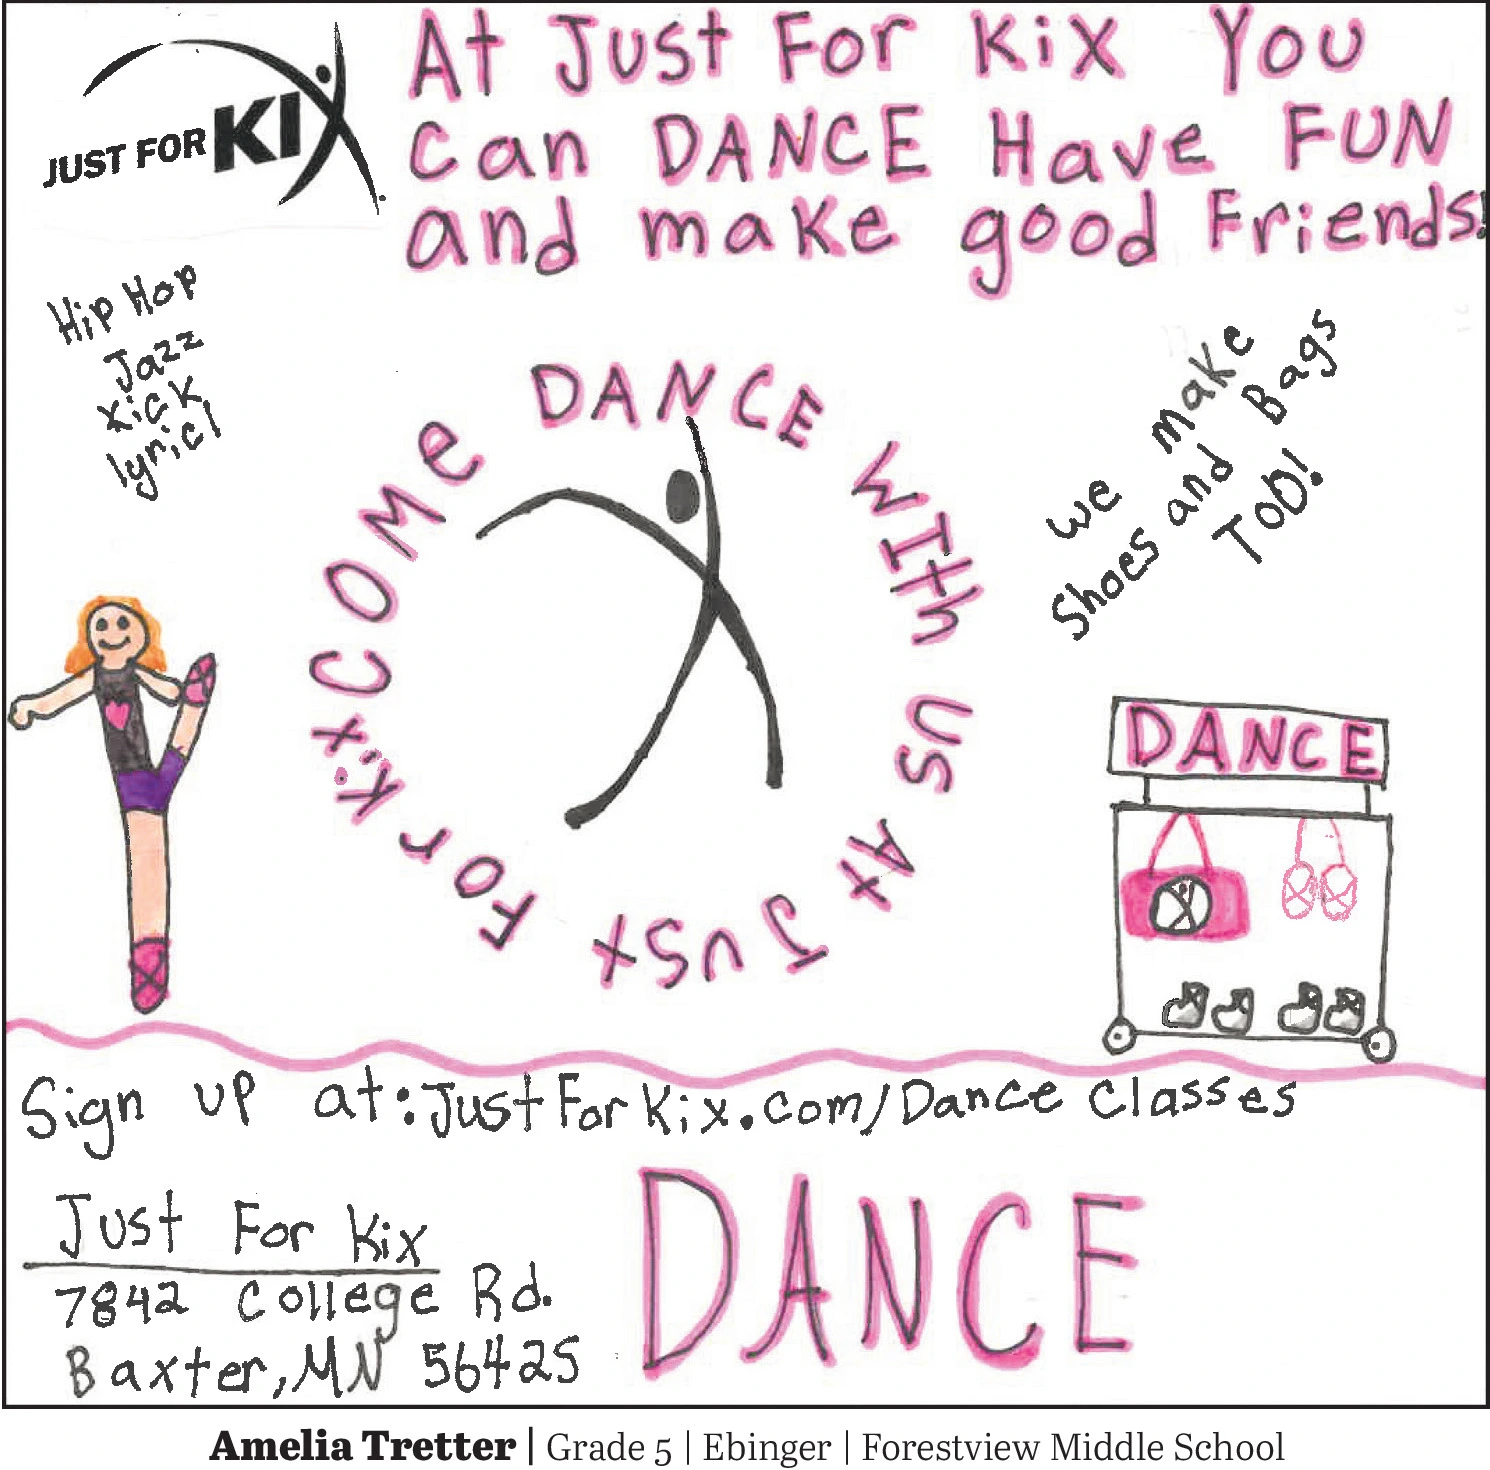 JUST FOR KIX
At Just For Kix You
can DANCE Have FUN
and make good Friends!
Hip Hop
Jazz
Kick
lyricl
COME DANCE WITh US At JUST FOr Kix
we make
Shoes and Bags
ToO!
DANCE
Sign up at: JustForKix.com/Dance classes
Just For Kix
7842 college Rd.
Baxter, MN 56425
DANCE
Amelia Tretter | Grade 5 | Ebinger | Forestview Middle School